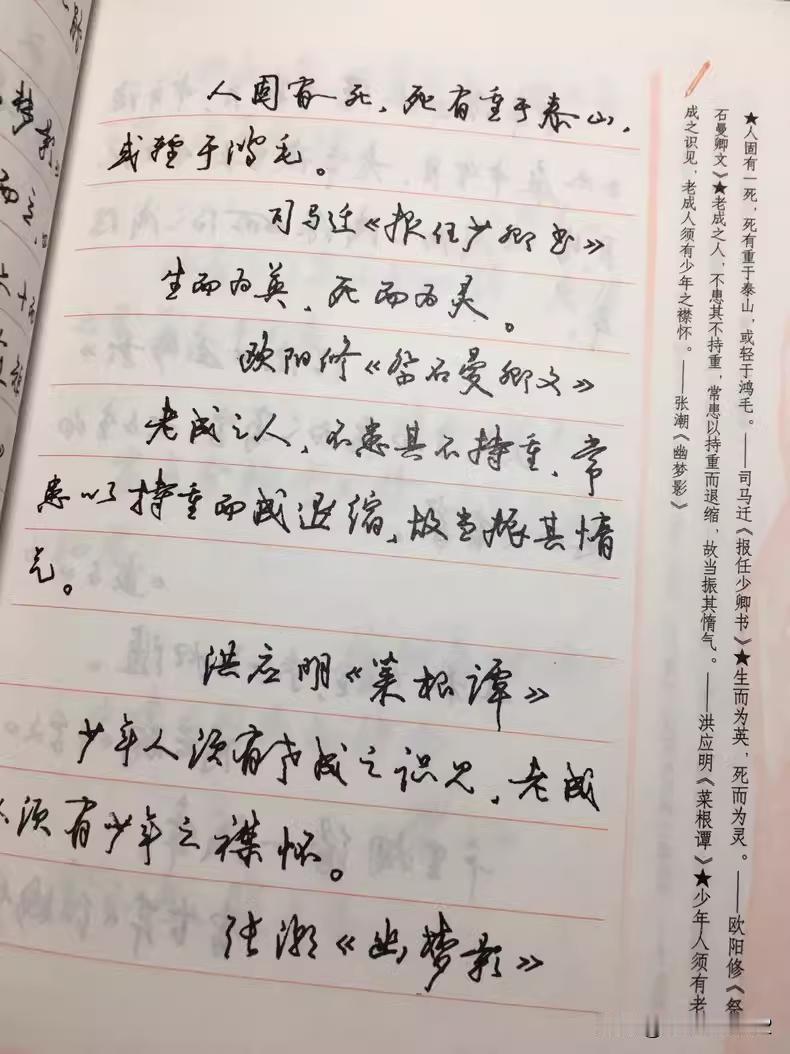 人固有一死，死有重于泰山，
或轻于鸿毛。
司马迁《报任少卿书》
生而为英，死而为灵。
欧阳修《祭石曼卿文》
老成之人，不患其不持重，常
患以持重而成退缩，故当振其惰
气。
洪应明《菜根谭》
少年人须有老成之识见，老成
人须有少年之襟怀。
张潮《幽梦影》
★人固有一死，死有重于泰山，或轻于鸿毛。——司马迁《报任少卿书》★生而为英，死而为灵。——欧阳修《祭
石曼卿文》★老成之人，不患其不持重，常患以持重而退缩，故当振其惰气。——洪应明《菜根谭》★少年人须有老
成之识见，老成人须有少年之襟怀。——张潮《幽梦影》